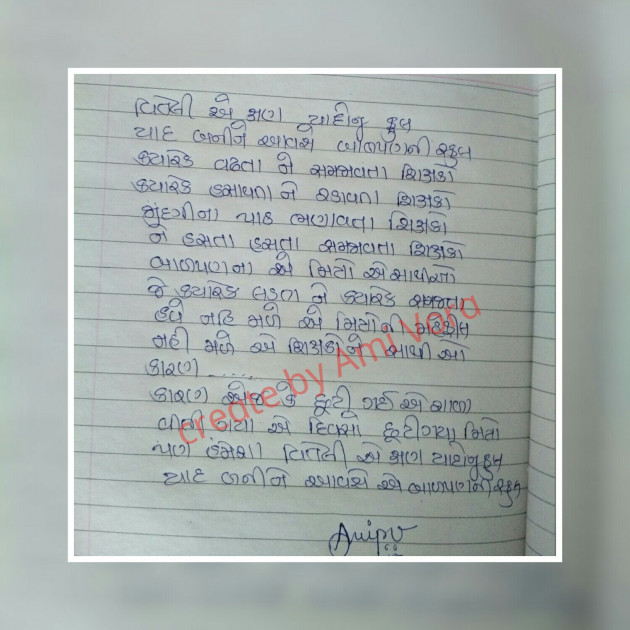 વિતેલી એ ક્ષણ યાદોનું ફુલ
યાદ બનીને આવશે બાળપણની સ્કુલ
ક્યારેક વઢતા ને સમજાવતા શિક્ષકો
ક્યારેક હસાવતા ને રડાવતા શિક્ષકો
જીંદગીના પાઠ ભણાવતા શિક્ષકો
ને હસતા હસતા સમજાવતા શિક્ષકો
બાળપણના એ મિત્રો એ સાથીઓ
જે ક્યારેક લડતા ને ક્યારેક સમજતા
હવે નહિ મળે એ મિત્રોની મહેફીલ
નહી મળે એ શિક્ષકો ને સાથીઓ
કારણ ......
કારણ એજ કે છૂટી ગઈ એ શાળા
વીતી ગયા એ દિવસો છૂટીગયા મિત્રો
પણ હંમેશા વિતેલી એ ક્ષણ યાદોનુંફુલ
યાદ બનીને આવશે એ બાળપણની સ્કુલ
create by Ami Vora